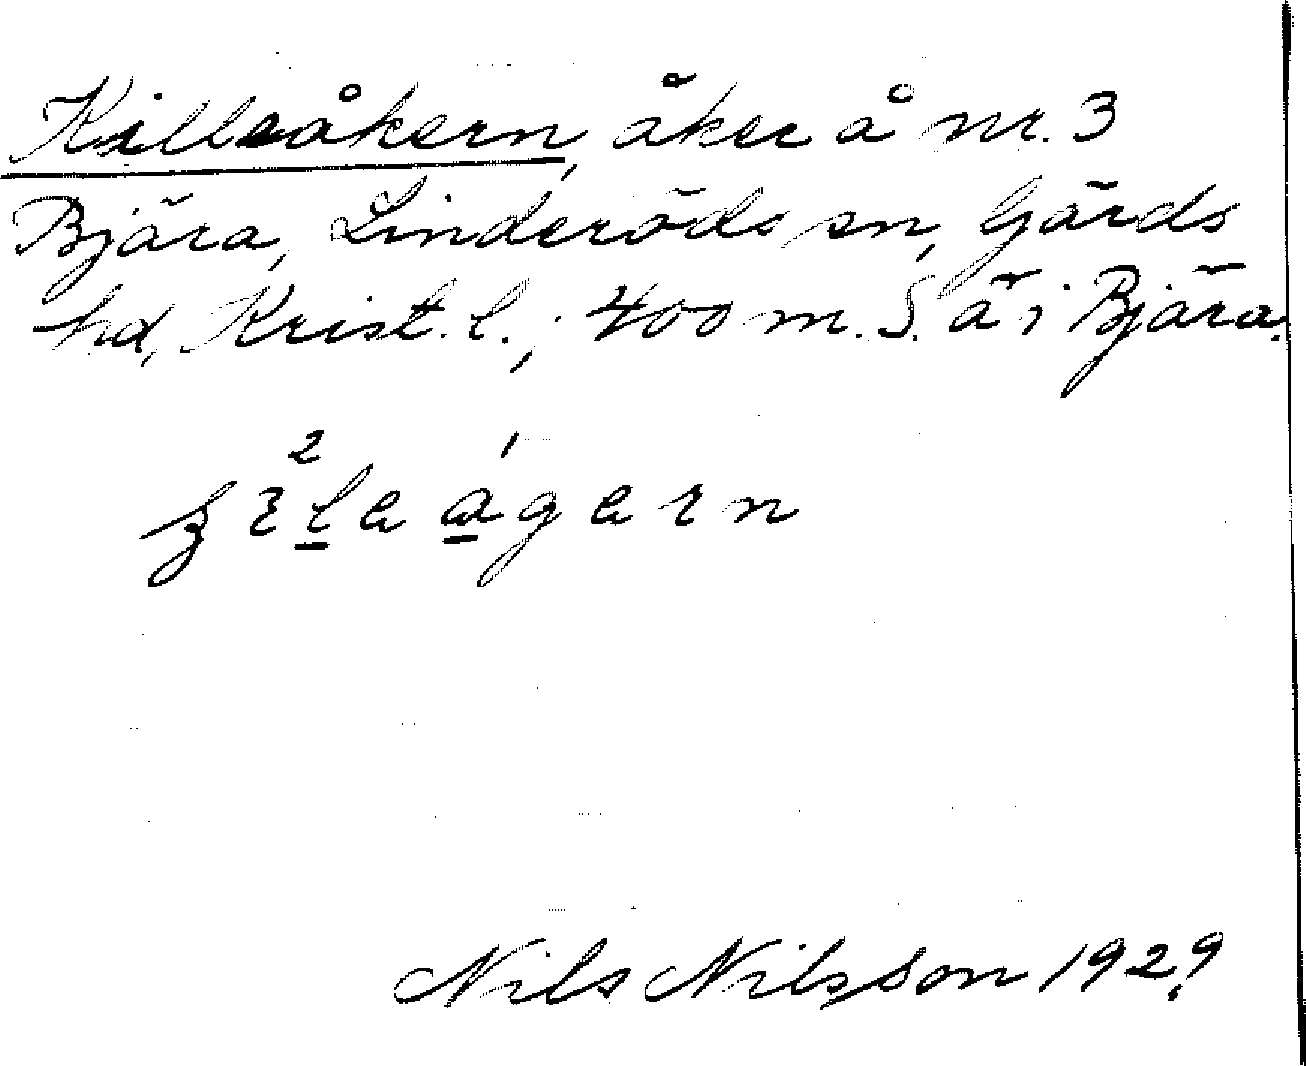 Killeåkern, åker å nr. 3
Bjära, Linderöds sn, Gärds
hd, Krist. l.; 400 m. S. ä i Bjära.
Nils Nilsson 1929